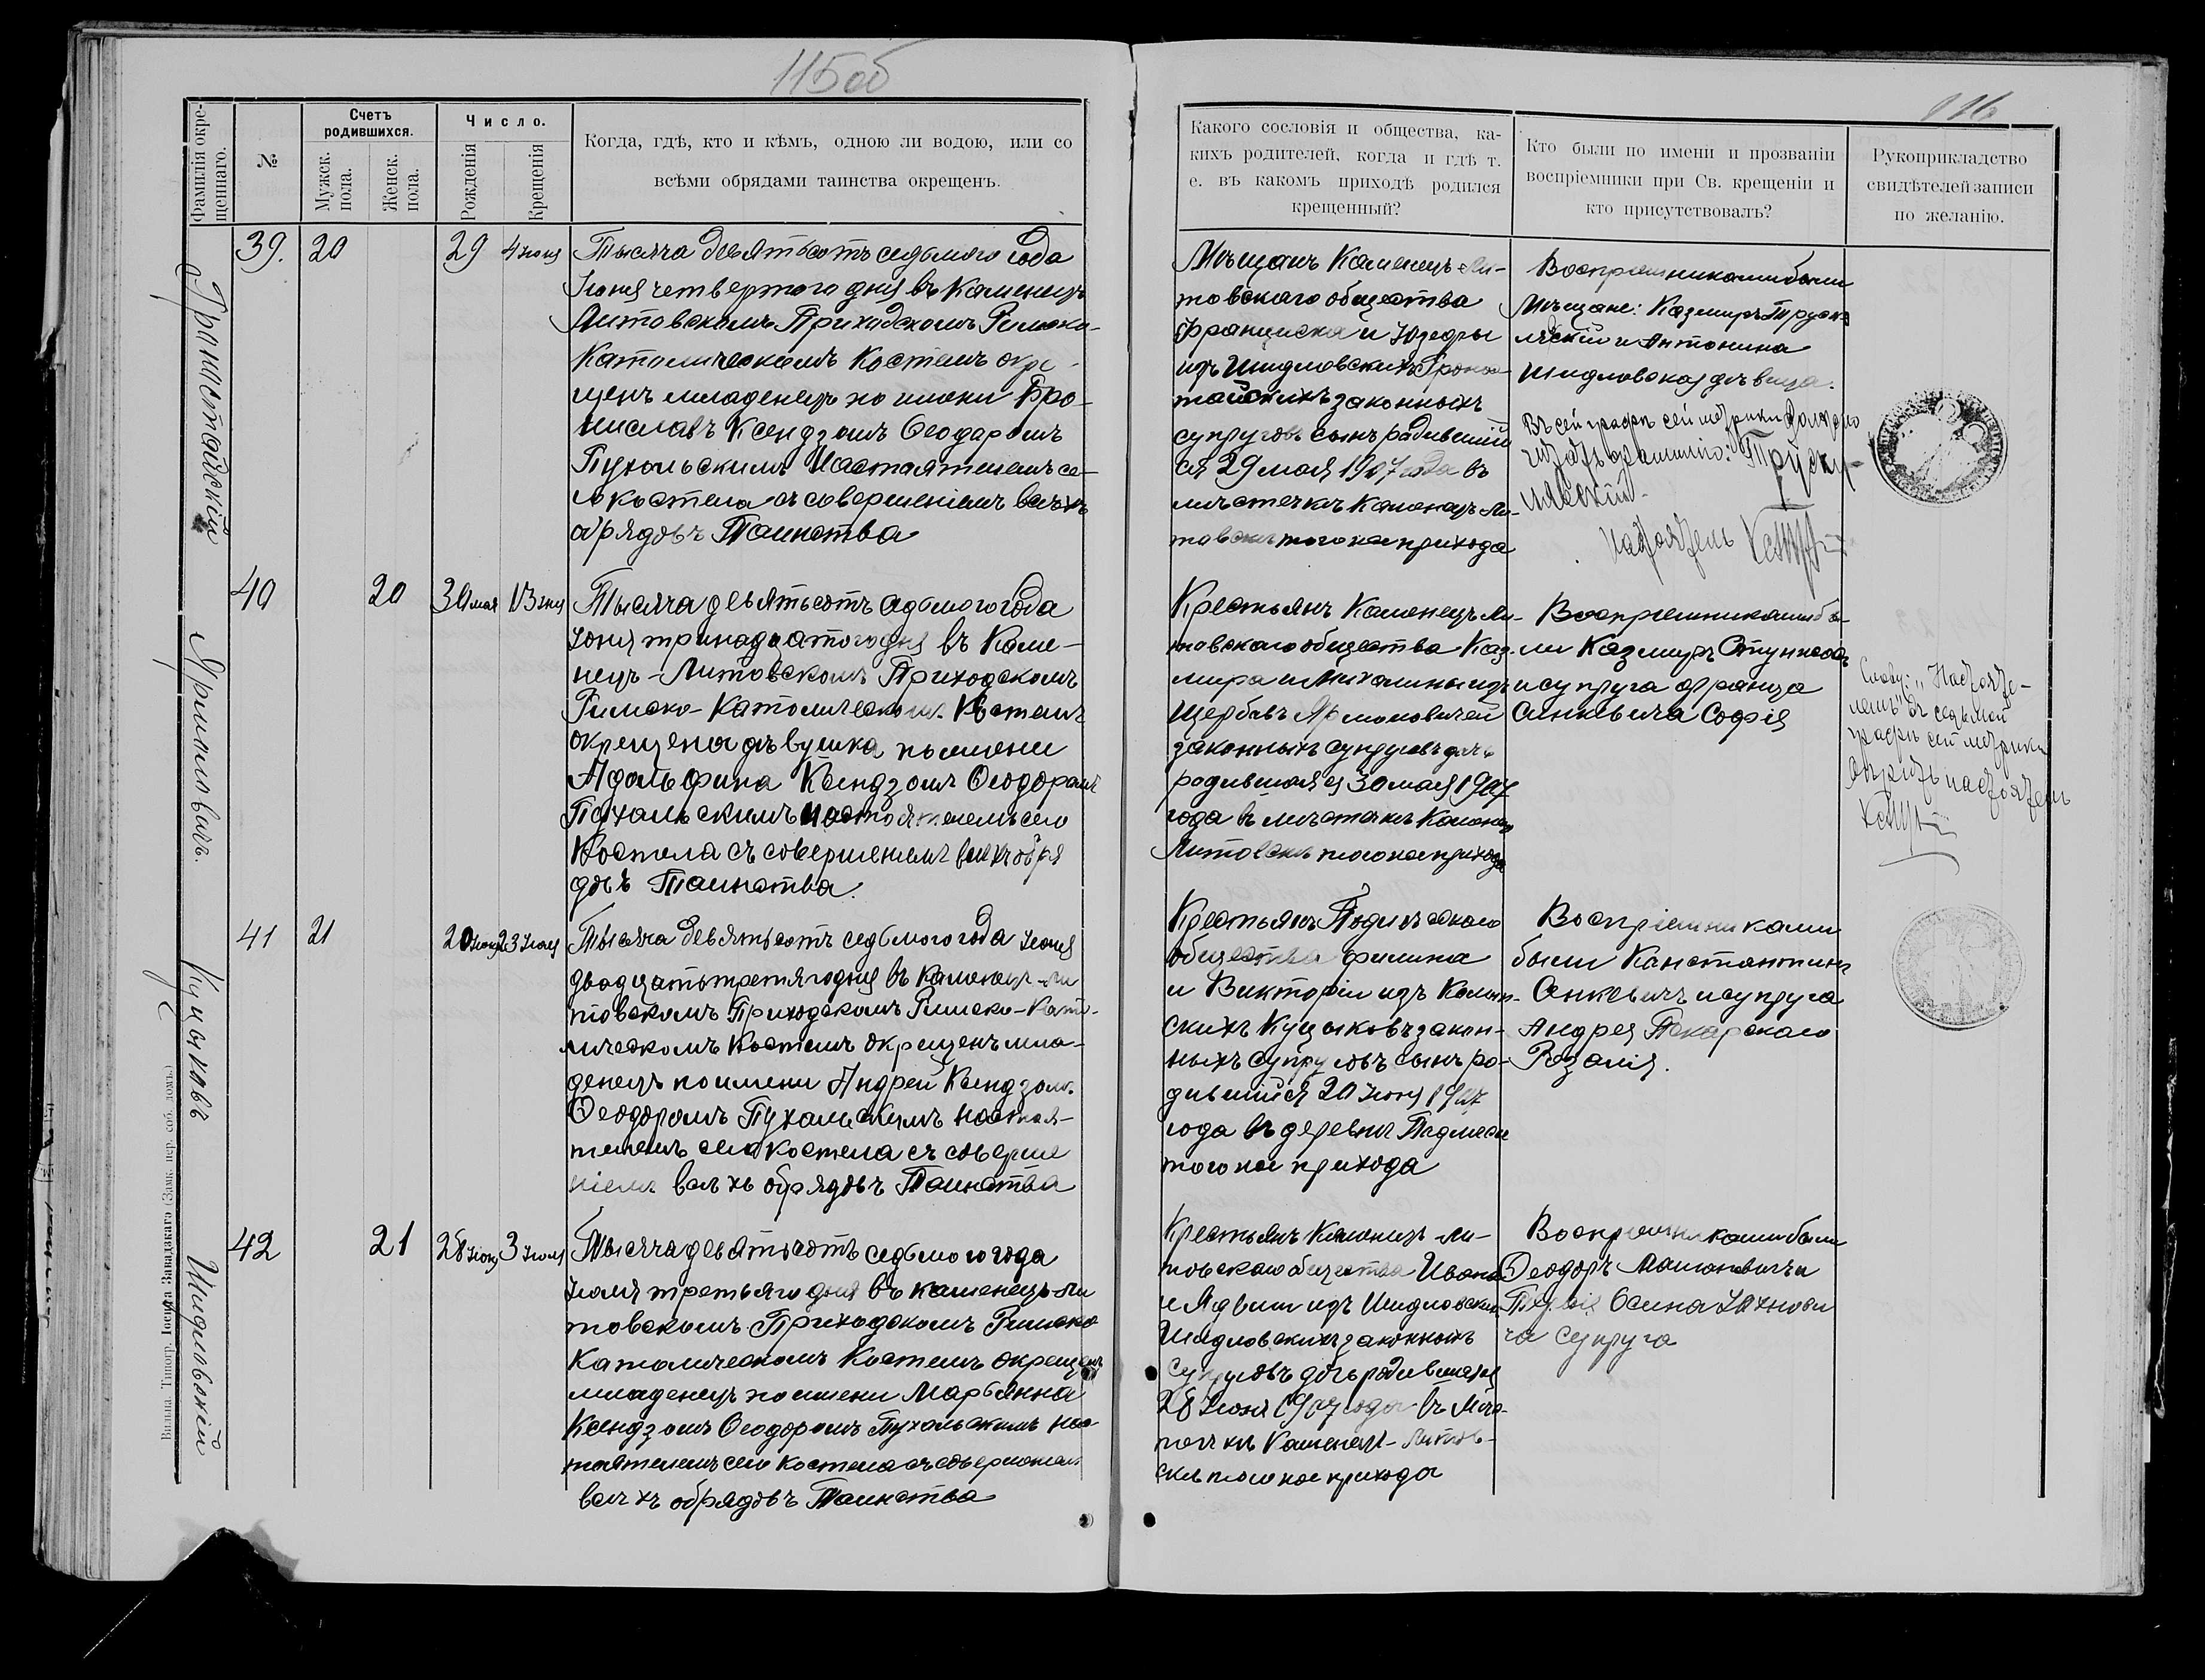 115 об
116
Фамилія окре-
щеннаго.
№
Счетъ
родившихся.
Мужск.
пола.
Женск.
пола.
Число.
Рожденія
Крещенія
Когда, гдѣ, кто и кѣмъ, одною ли водою, или со
всѣми обрядами таинства окрещенъ.
Какого сословія и общества, ка-
кихъ родителей, когда и гдѣ т.
е. въ какомъ приходѣ родился
крещенный?
Кто были по имени и прозваніи
воспріемники при Св. крещеніи и
кто присутствовалъ?
Рукоприкладство
свидѣтелей записи
по желанію.
39.
20
29
4 Іюня
Тысяча девятьсотъ седьмого года
Іюня четвертого дня въ Каменецъ
Литовскомъ Приходскомъ Римско-
Католическомъ Костелѣ окре-
щенъ младенецъ по имени Бро-
ниславъ Ксендзомъ Ѳеодоромъ
Пухальскимъ Настоятелемъ се-
го костела съ совершеніемъ всѣхъ
обрядовъ Таинства
Мѣщанъ Каменецъ-Ли-
товскаго общества
Франциска и Юзефы
изъ Шидловскихъ Гроно-
тайскихъ законныхъ
супруговъ сынъ родившій
ся 29 мая 1907 года въ
мѣстечкѣ Каменецъ-Ли-
товскѣ того же прихода
Воспріемниками были
Мѣщане: Казимиръ Труск
лявскій и Антонина
Шидловская дѣвица.
Въ сей графѣ сей метрики должно
Настоятель
40
20
30 мая
13 Іюня
Ярмоловичъ.
Тысяча девятьсотъ седьмого года
Іюня тринадцатого дня въ Каме-
нецъ-Литовскомъ Приходскомъ
Римско-Католическомъ Костелѣ
окрещена дѣвушка по имени
Адольфина Ксендзомъ Ѳеодоромъ
Пухальскимъ Настоятелемъ сего
Костела съ совершеніемъ всѣхъ обря
довъ Таинства.
Крестьянъ Каменецъ Ли-
товскаго общества Каз-
мира и Михалины изъ
Щербовъ Ярмоловичей
законныхъ супруговъ дочь
родившаяся 30 мая 1907
года въ мѣстечкѣ Каменец
Литовскѣ того же прихода
Воспріемниками бы-
ли Казимиръ
и супруга Франца
Санкевича Софія
Слову: „Настояте-
лемъ" въ седьмой
графѣ сей метрики
вѣрить настоятель
41
21
20 Іюня
23 Іюня
Куцыковъ
Тысяча девятьсотъ седьмого года Іюня
двадцать третяго дня въ Каменецъ-Ли
товскомъ Приходскомъ Римско-Като-
лическомъ Костелѣ окрещенъ мла-
денецъ по имени Андрей Ксендзомъ
Ѳеодоромъ Пухальскимъ Настоя-
телемъ сего Костела съ соверше
ніемъ всѣхъ обрядовъ Таинства
Крестьянъ
общества Филипа
и Викторіи изъ
скихъ Куцыковъ закон-
ныхъ супруговъ сынъ ро-
дившійся 20 Іюня 1907
года въ деревнѣ
того же прихода
Воспріемниками
были Константинъ
Санкевичъ и супруга
Андрея Пекарскаго
Розалія.
42
21
28 Іюня
3 Іюля
Шидловскій
Тысяча девятьсотъ седьмого года
Іюля третьяго дня въ Каменецъ-Ли
товскомъ Приходскомъ Римско
Католическомъ Костелѣ окрещенъ
младенецъ по имени Марьянна
Ксендзомъ Ѳеодоромъ Пухальскимъ нас
тоятелемъ сего Костела съ совершеніемъ
всѣхъ обрядовъ Таинства
Крестьянъ Каменецъ-Ли-
товскаго общества Ивана
и Ядвиги изъ Шидловскихъ
Шидловскихъ законныхъ
супруговъ дочь родившаяся
28 Іюня 1907 года въ Мѣс-
течкѣ Каменецъ-Литов-
скѣ того же прихода
Воспріемниками были
Ѳеодоръ и
Осипа Яхнови
ча супруга
Вильна. Типогр. Іосифа Завадзкаго (Замк. пер. соб. домъ.)